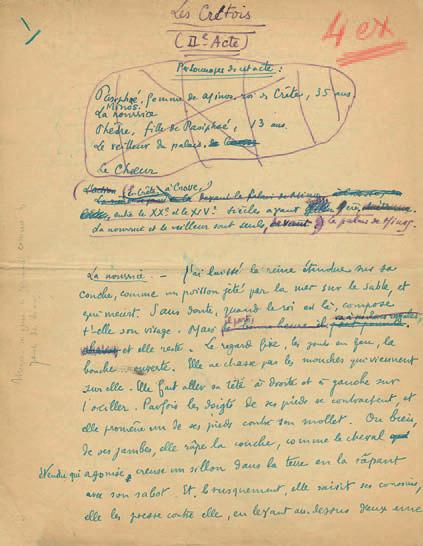 Les Crétois
(IIe Acte)
4 ex
Personnages de cet acte :
Pasiphaé, femme de Minos, roi de Crète, 35 ans.
Minos.
La nourrice
Phèdre, fille de Pasiphaé, 13 ans.
Le veilleur du palais,
Le Chœur
L'action (En Crète, à Cnosse,)
devant le palais de Minos
entre le XXe et le XIVe siècles avant
La nourrice et le veilleur sont seuls, devant le palais de Minos.
La nourrice. — J'ai laissé la reine étendue sur sa
couche, comme un poisson jeté par la mer sur le sable, et
qui meurt. Sans doute, quand le roi est là, compose
t-elle son visage. Mais il part,
et elle reste. Le regard fixe, les joues en feu, la
bouche ouverte. Elle ne chasse pas les mouches qui viennent
sur elle. Elle fait aller sa tête à droite et à gauche sur
l'oreiller. Parfois les doigts de ses pieds se contractent, et
elle promène un de ses pieds contre son mollet. Ou bien,
de ses jambes, elle râpe la couche, comme le cheval
étendu qui agonise, creuse un sillon dans la terre en la râpant
avec son sabot. Et, brusquement, elle saisit ses coussins,
elle les presse contre elle, en levant au-dessus d'eux une